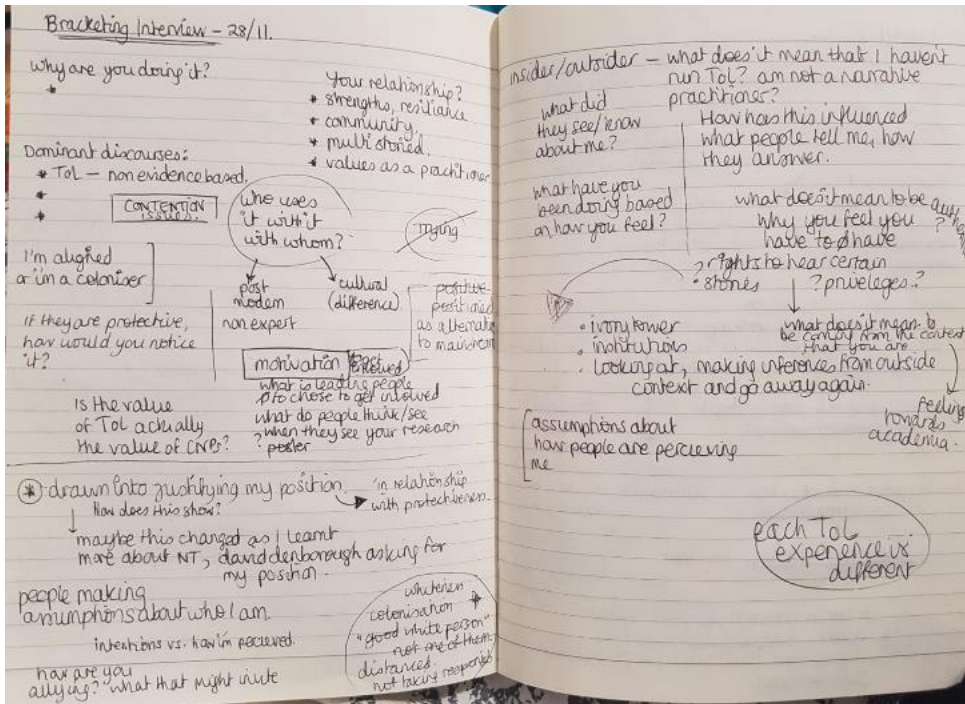 Bracketing Interview - 28/11.
why are you doing it?
*
your relationship?
* strengths, resiliance
* community.
* multi storied.
* values as a practitioner
Dominant discourses:
* ToL - non evidence based.
*
*
CONTENTION
ISSUES.
who uses
it with it
with whom?
trying
I'm aligned
or i'm a coloniser
post
modern
non expert
cultural
(difference)
positive
positioned
as alternative
to mainstream
if they are protective,
how would you notice
it?
motivation
what is leading people
to chose to get involved
what do people think/see
? when they see your research
? poster
Is the value
of ToL actually
the value of CNPs?
* drawn into justifying my position
How does this show?
in relationship
with protectiveness.
maybe this changed as I learnt
more about NT, david denborough asking for
my position.
people making
assumptions about who I am.
intentions vs. how i'm percieved.
how are you
allying? what that might invite
whiteness
colonisation
"good white person"
not one of them.
distanced.
not taking
insider/outsider - what does it mean that I haven't
run ToL? am not a narrative
practitioner?
what did
they see/know
about me?
How has this influenced
what people tell me, how
they answer.
what have you
been doing based
on how you feel?
what does it mean to be
why you feel you ?
have to have
? rights to hear certain
· stories
? priveleges?
· ivory tower
· institutions
· looking at, making inferences from outside
context and go away again.
what does it mean to
be coming from the context
that you are
feelings
towards
academia.
assumptions about
how people are percieving
me
each ToL
experience is
different